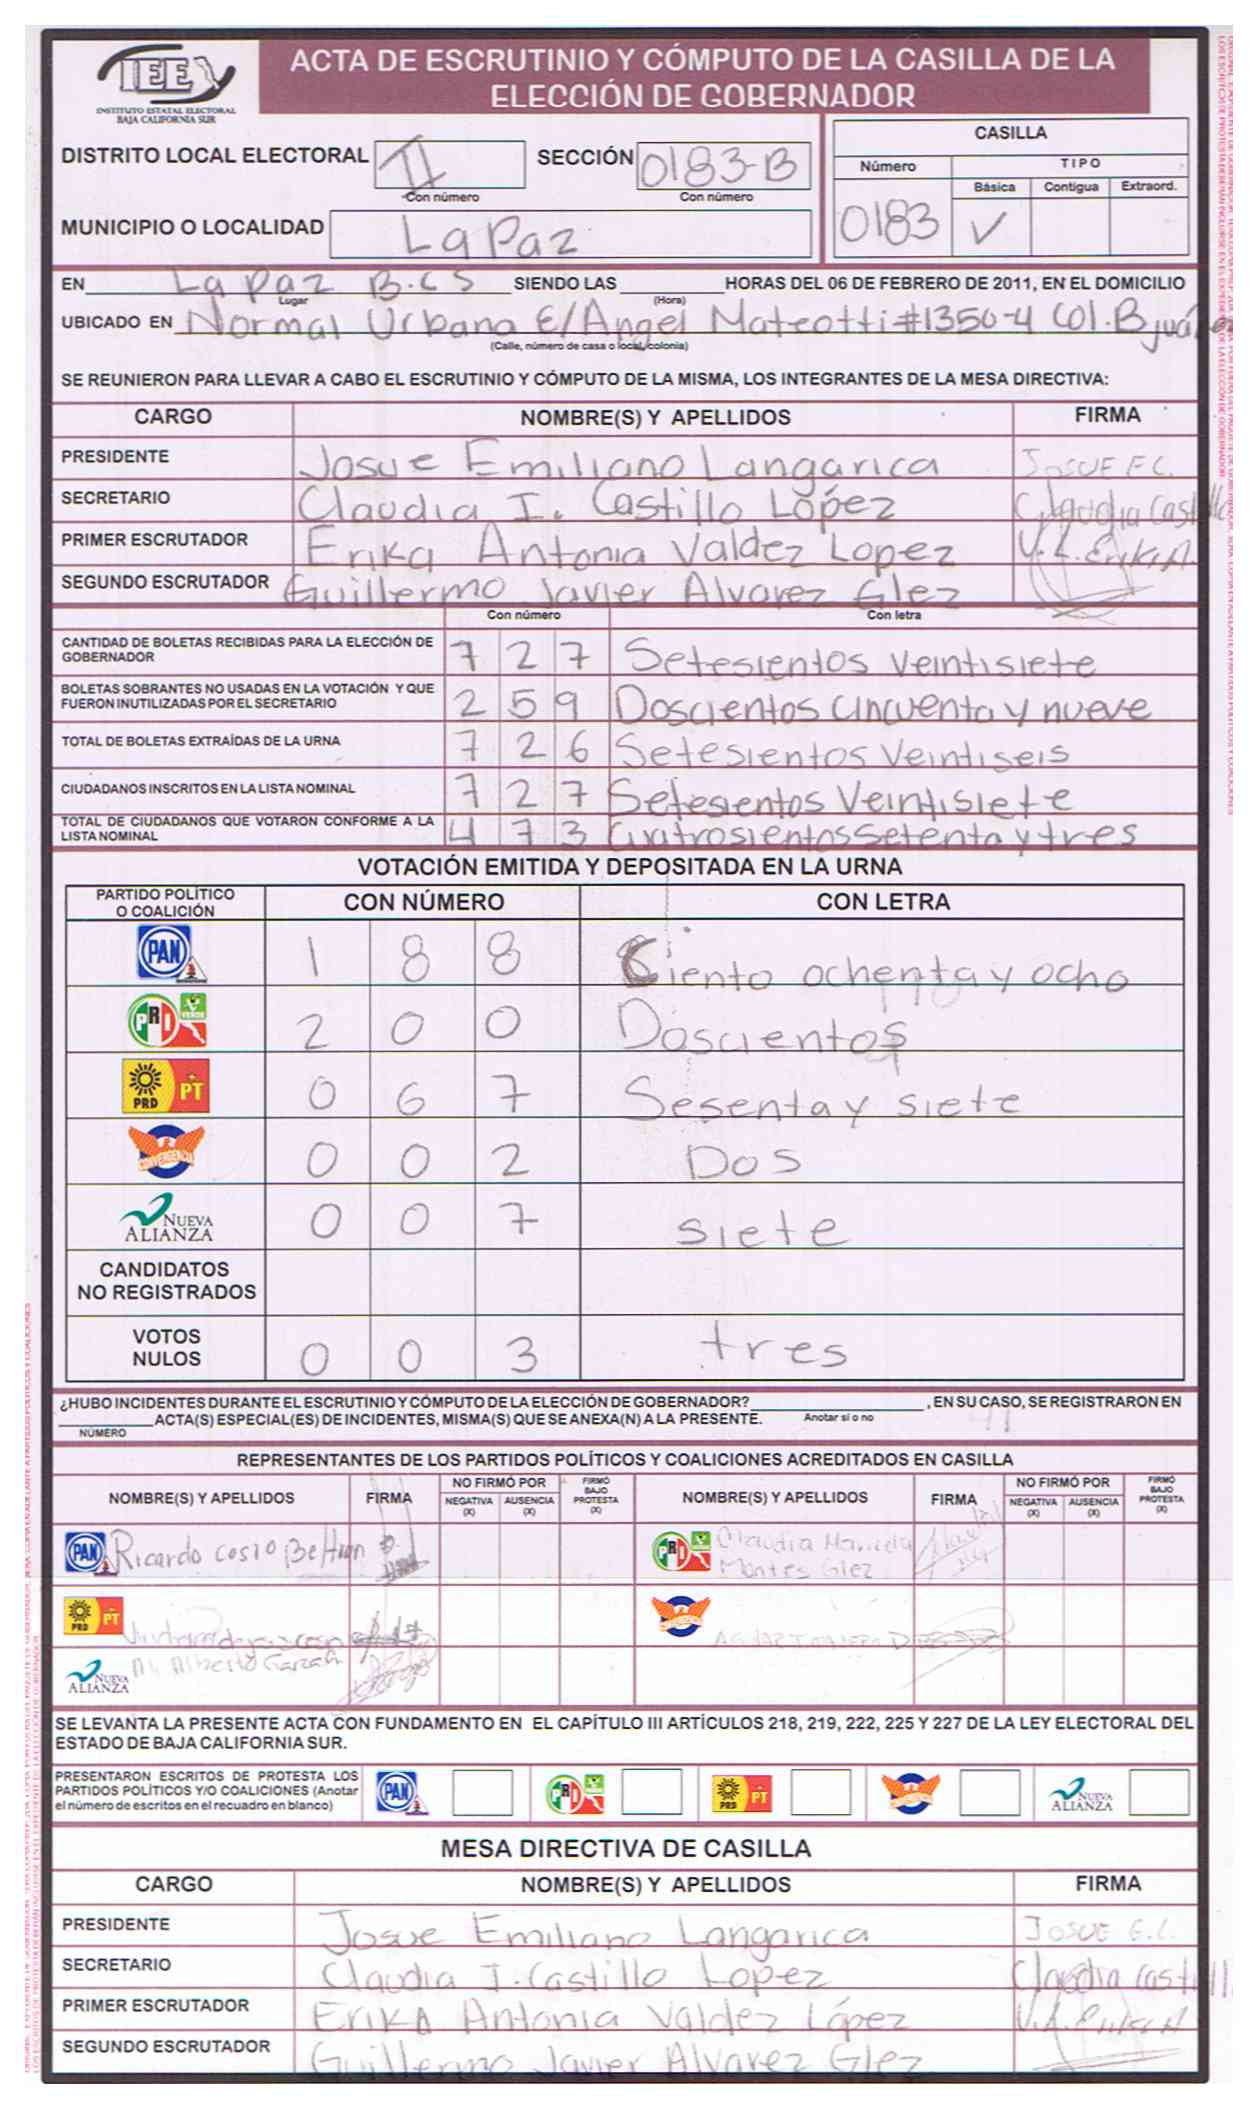 IEE
INSTITUTO ESTATAL ELECTORAL
BAJA CALIFORNIA SUR
ACTA DE ESCRUTINIO Y CÓMPUTO DE LA CASILLA DE LA
ELECCIÓN DE GOBERNADOR
DISTRITO LOCAL ELECTORAL II SECCIÓN 0183-B
Con número Con número
MUNICIPIO O LOCALIDAD La Paz
CASILLA
Número TIPO
Básica Contigua Extraord.
0183 ✓
EN La Paz B.C.S SIENDO LAS HORAS DEL 06 DE FEBRERO DE 2011, EN EL DOMICILIO
Lugar (Hora)
UBICADO EN Normal Urbana E/Angel Mateotti #1350-4 Col. B juárez
(Calle, número de casa o local, colonia)
SE REUNIERON PARA LLEVAR A CABO EL ESCRUTINIO Y CÓMPUTO DE LA MISMA, LOS INTEGRANTES DE LA MESA DIRECTIVA:
CARGO NOMBRE(S) Y APELLIDOS FIRMA
PRESIDENTE Josue Emiliano Langarica JOSUE E C.
SECRETARIO Claudia I. Castillo López Claudia Castill
PRIMER ESCRUTADOR Erika Antonia Valdez Lopez V.L. Erika A.
SEGUNDO ESCRUTADOR Guillermo Javier Alvarez Glez
Con número Con letra
CANTIDAD DE BOLETAS RECIBIDAS PARA LA ELECCIÓN DE
GOBERNADOR 7 2 7 Setesientos veintisiete
BOLETAS SOBRANTES NO USADAS EN LA VOTACIÓN Y QUE
FUERON INUTILIZADAS POR EL SECRETARIO 2 5 9 Doscientos cincuenta y nueve
TOTAL DE BOLETAS EXTRAÍDAS DE LA URNA 7 2 6 Setesientos Veintiseis
CIUDADANOS INSCRITOS EN LA LISTA NOMINAL 7 2 7 Setesientos Veintisiete
TOTAL DE CIUDADANOS QUE VOTARON CONFORME A LA
LISTA NOMINAL 4 7 3 Cuatrosientos setenta y tres
VOTACIÓN EMITIDA Y DEPOSITADA EN LA URNA
PARTIDO POLÍTICO
O COALICIÓN CON NÚMERO CON LETRA
PAN 1 8 8 Ciento ochenta y ocho
PRI VERDE 2 0 0 Doscientos
PRD PT 0 6 7 Sesenta y siete
CONVERGENCIA 0 0 2 Dos
NUEVA ALIANZA 0 0 7 siete
CANDIDATOS
NO REGISTRADOS
VOTOS
NULOS 0 0 3 tres
¿HUBO INCIDENTES DURANTE EL ESCRUTINIO Y CÓMPUTO DE LA ELECCIÓN DE GOBERNADOR? , EN SU CASO, SE REGISTRARON EN
ACTA(S) ESPECIAL(ES) DE INCIDENTES, MISMA(S) QUE SE ANEXA(N) A LA PRESENTE. Anotar sí o no
NÚMERO
REPRESENTANTES DE LOS PARTIDOS POLÍTICOS Y COALICIONES ACREDITADOS EN CASILLA
NOMBRE(S) Y APELLIDOS FIRMA NO FIRMÓ POR NEGATIVA (X) AUSENCIA (X) FIRMÓ BAJO PROTESTA (X) NOMBRE(S) Y APELLIDOS FIRMA NO FIRMÓ POR NEGATIVA (X) AUSENCIA (X) FIRMÓ BAJO PROTESTA (X)
PAN Ricardo Cosio Beltran PRI Claudia
Montes Glez
PRD PT
NUEVA ALIANZA Alberto
SE LEVANTA LA PRESENTE ACTA CON FUNDAMENTO EN EL CAPÍTULO III ARTÍCULOS 218, 219, 222, 225 Y 227 DE LA LEY ELECTORAL DEL
ESTADO DE BAJA CALIFORNIA SUR.
PRESENTARON ESCRITOS DE PROTESTA LOS
PARTIDOS POLÍTICOS Y/O COALICIONES (Anotar
el número de escritos en el recuadro en blanco) PAN PRI PRD PT NUEVA ALIANZA
MESA DIRECTIVA DE CASILLA
CARGO NOMBRE(S) Y APELLIDOS FIRMA
PRESIDENTE Josue Emiliano Langarica JOSUE E.C.
SECRETARIO Claudia I. Castillo Lopez Claudia Castill
PRIMER ESCRUTADOR Erika Antonia Valdez López
SEGUNDO ESCRUTADOR Guillermo Javier Alvarez Glez